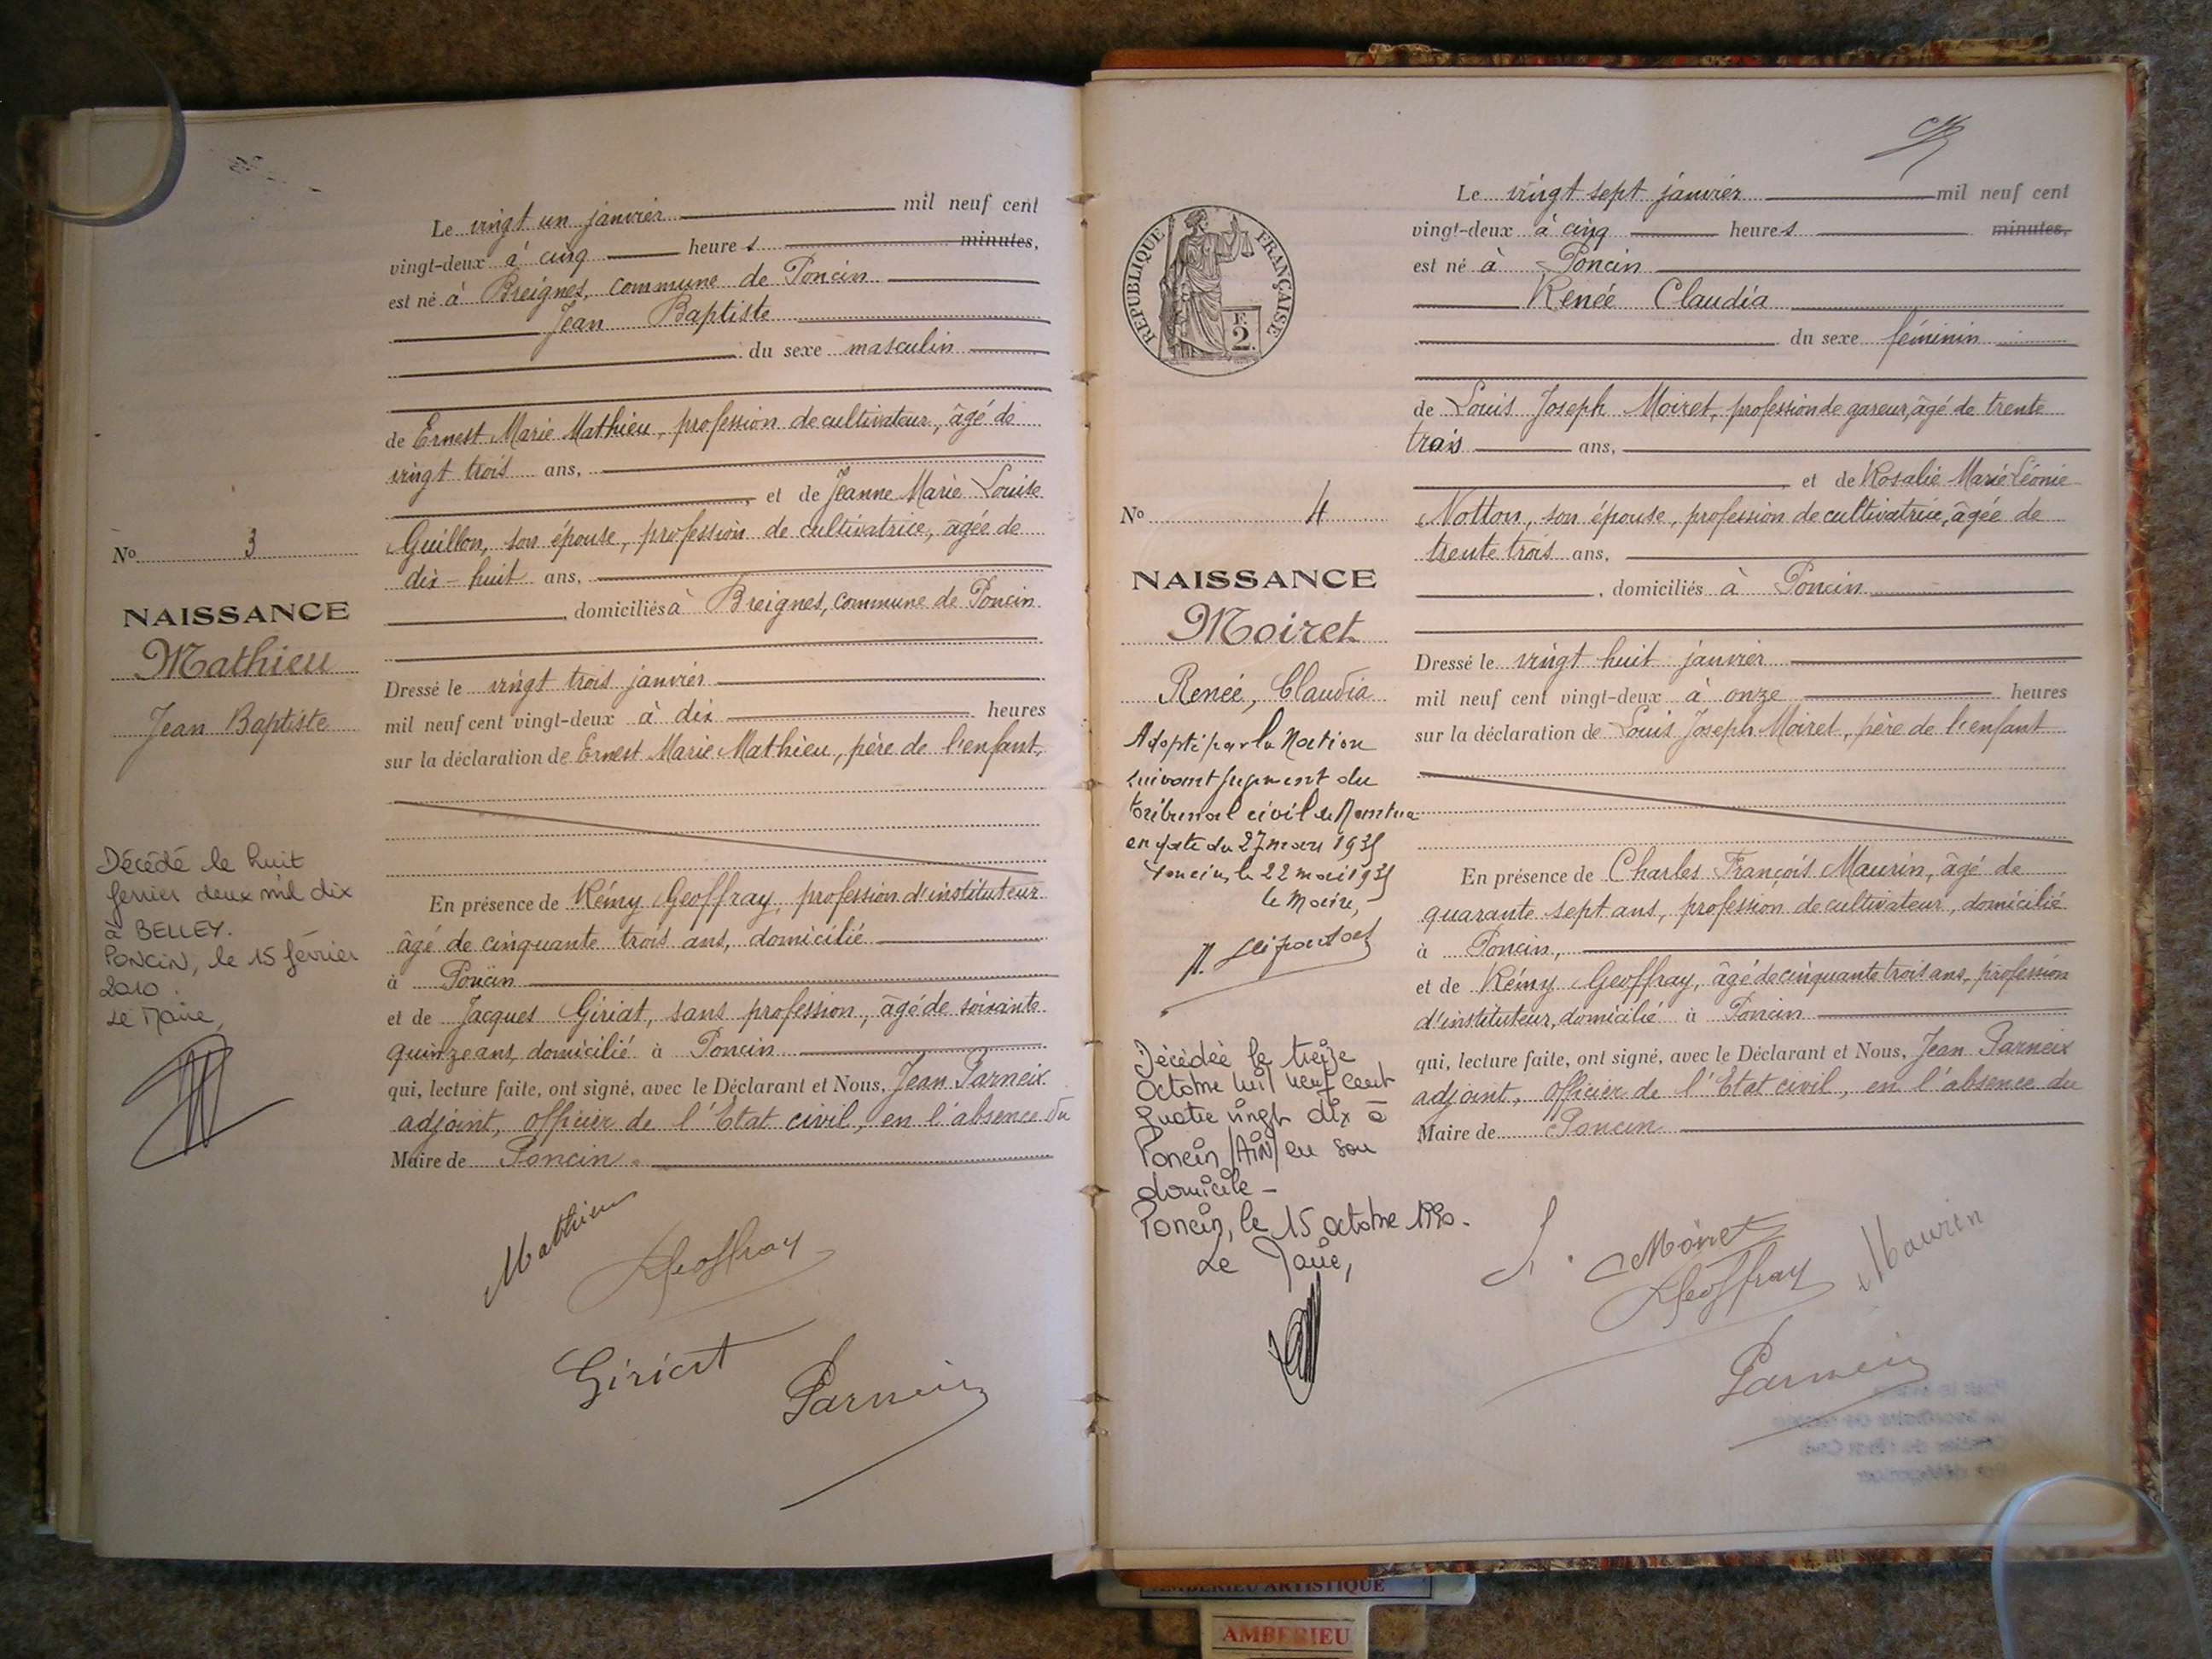 Le vingt un janvier mil neuf cent
vingt-deux à cinq heures minutes,
est né à Breignes, commune de Poncin
Jean Baptiste
du sexe masculin
de Ernest Marie Mathieu, profession de cultivateur, âgé de
vingt trois ans,
et de Jeanne Marie Louise
Guillon, son épouse, profession de cultivatrice, âgée de
dix-huit ans,
domiciliés à Breignes, commune de Poncin
Dressé le vingt trois janvier
mil neuf cent vingt-deux à dix heures
sur la déclaration de Ernest Marie Mathieu, père de l'enfant,
En présence de Rémy Geoffray, profession d'instituteur
âgé de cinquante trois ans, domicilié
à Poncin
et de Jacques Giriat, sans profession, âgé de soixante
quinze ans, domicilié à Poncin
qui, lecture faite, ont signé, avec le Déclarant et Nous, Jean Parneix
adjoint, officier de l'Etat civil, en l'absence du
Maire de Poncin
Mathieu
Geoffray
Giriat
Parneix
No 3
NAISSANCE
Mathieu
Jean Baptiste
Décédé le huit
février deux mil dix
à BELLEY.
PONCIN, le 15 février
2010.
Le Maire,
RÉPUBLIQUE FRANÇAISE
F.
2.
No 4
NAISSANCE
Moiret
Renée, Claudia
Adopté par la Nation
suivant jugement du
tribunal civil de Nantua
en date du 27 mars 1935
Poncin, le 22 mai 1935
le Maire,
Décédée le treize
Octobre mil neuf cent
quatre vingt dix à
Poncin (AIN) en son
domicile -
Poncin, le 15 octobre 1990.
Le Maire,
Le vingt sept janvier mil neuf cent
vingt-deux à cinq heures minutes,
est né à Poncin
Renée Claudia
du sexe féminin
de Louis Joseph Moiret, profession de gareur, âgé de trente
trois ans,
et de Rosalie Marie Léonie
Notton, son épouse, profession de cultivatrice, âgée de
trente trois ans,
domiciliés à Poncin
Dressé le vingt huit janvier
mil neuf cent vingt-deux à onze heures
sur la déclaration de Louis Joseph Moiret, père de l'enfant
En présence de Charles François Maurin, âgé de
quarante sept ans, profession de cultivateur, domicilié
à Poncin,
et de Rémy Geoffray, âgé de cinquante trois ans, profession
d'instituteur, domicilié à Poncin
qui, lecture faite, ont signé, avec le Déclarant et Nous, Jean Parneix
adjoint, officier de l'Etat civil, en l'absence du
Maire de Poncin
Moiret
Maurin
Geoffray
Parneix
AMBERIEU ARTISTIQUE
AMBERIEU